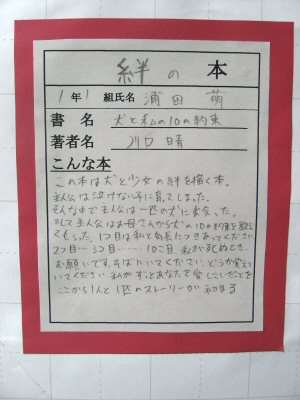 絆の本
1年1組氏名 浦田 萌
書名 犬と私の10の約束
著者名 川口 晴
こんな本
この本は犬と少女の絆を描く本。
主人公は泣けない子に育ってしまった。
そんな中で主人公は一匹の犬に出会った。
そして主人公はお母さんから犬の10の約束を教え
てもらった。1つ目は私と気長につきあってください
2つ目…3つ目……10こ目、私が死ぬとき、
お願いです。そばにいてください。どうか覚えて
いてください 私がずっとあなたを愛していたことを
ここから1人と1匹のストーリーが始まる